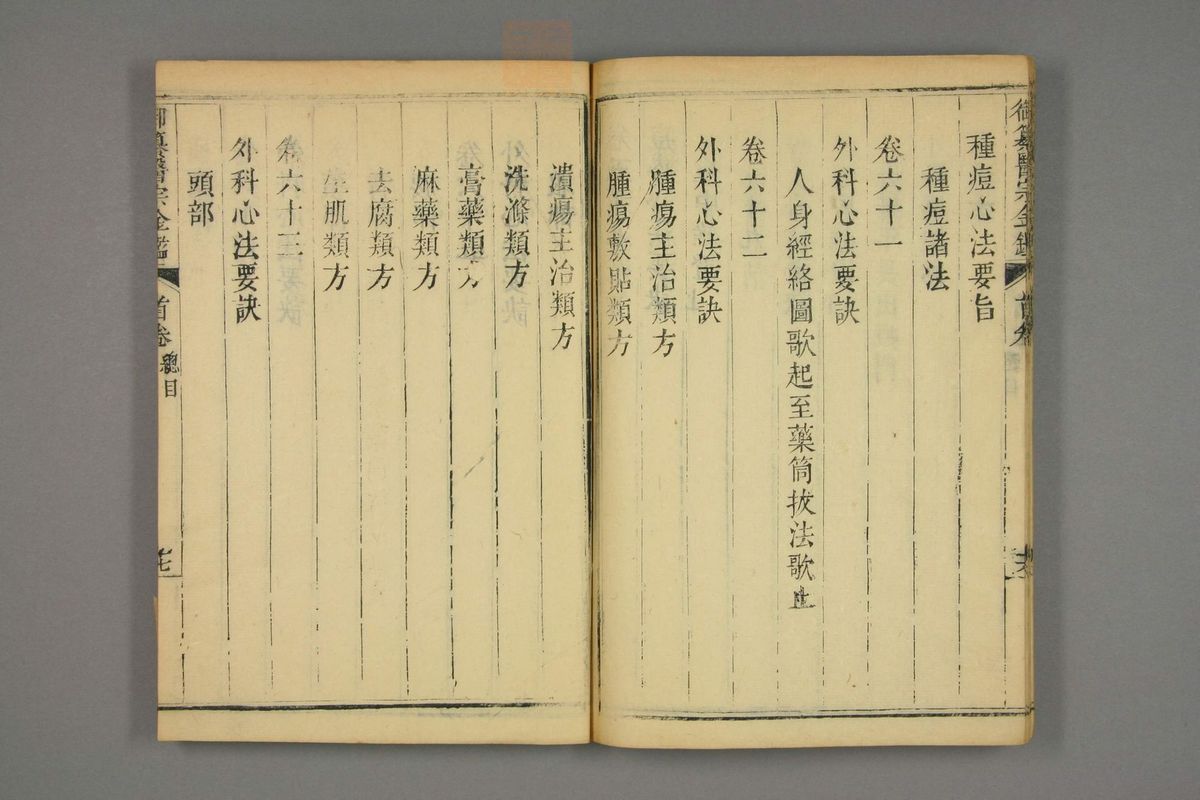 種痘心法要旨
種痘諸法
卷六十一
外科心法要訣
人身經絡圖歌起至藥筒拔法歌止
卷六十二
外科心法要訣
腫瘍主治類方
腫瘍敷貼類方
潰瘍主治類方
洗滌類方
膏藥類方
麻藥類方
去腐類方
生肌類方
卷六十三
外科心法要訣
頭部
御纂醫宗金鑑
首卷
總目